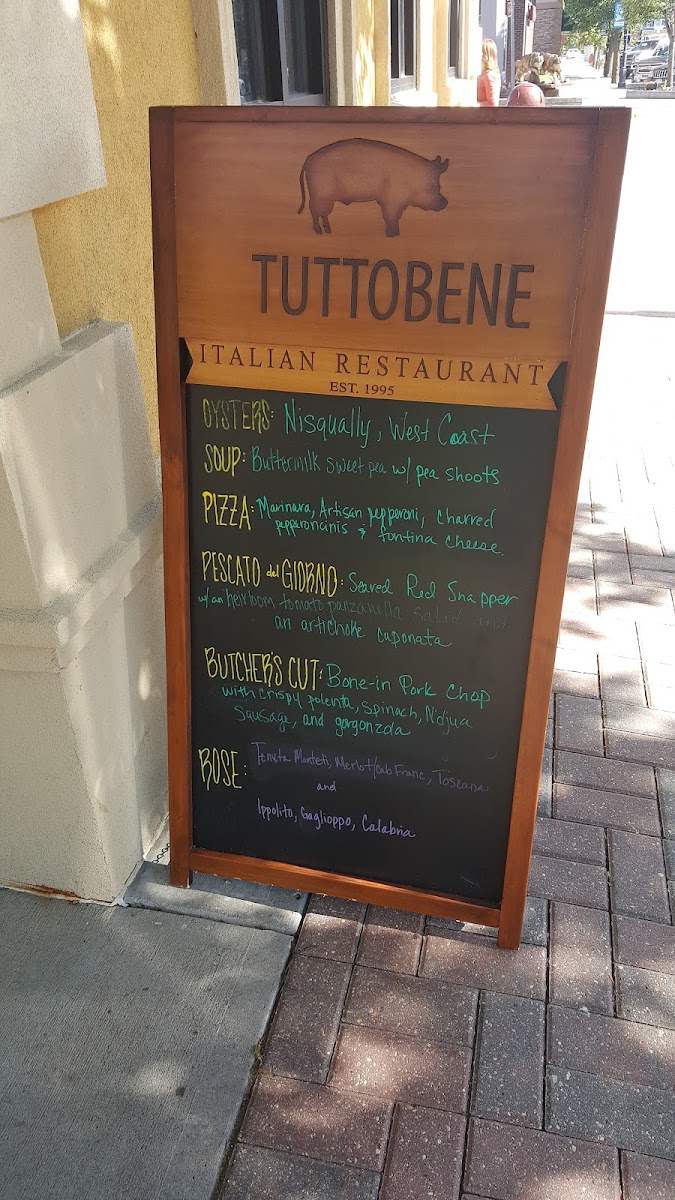 TUTTOBENE
ITALIAN RESTAURANT
EST. 1995
OYSTERS: Nisqually, West Coast
SOUP: Buttermilk sweet pea w/ pea shoots
PIZZA: Marinara, Artisan pepperoni, charred
pepperoncinis & fontina cheese.
PESCATO del GIORNO: Seared Red Snapper
w/ an heirloom tomato panzanella salad and
an artichoke caponata
BUTCHER'S CUT: Bone-in Pork Chop
with crispy polenta, spinach, N'djua
Sausage, and gorgonzola
ROSE: Tenuta Monteti, Merlot/Cab Franc, Toscana
and
Ippolito, Gaglioppo, Calabria